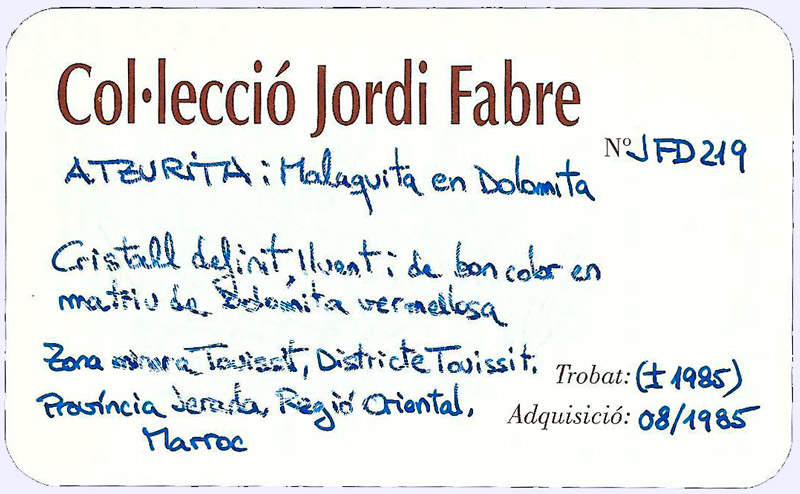 Col·lecció Jordi Fabre
Nº JFD219
ATZURITA i Malaquita en Dolomita
Cristall definit, lluent i de bon color en
matriu de Dolomita vermellosa
Zona minera Touissit, Districte Touissit,
Província Jerada, Regió Oriental,
Marroc
Trobat: (± 1985)
Adquisició: 08/1985